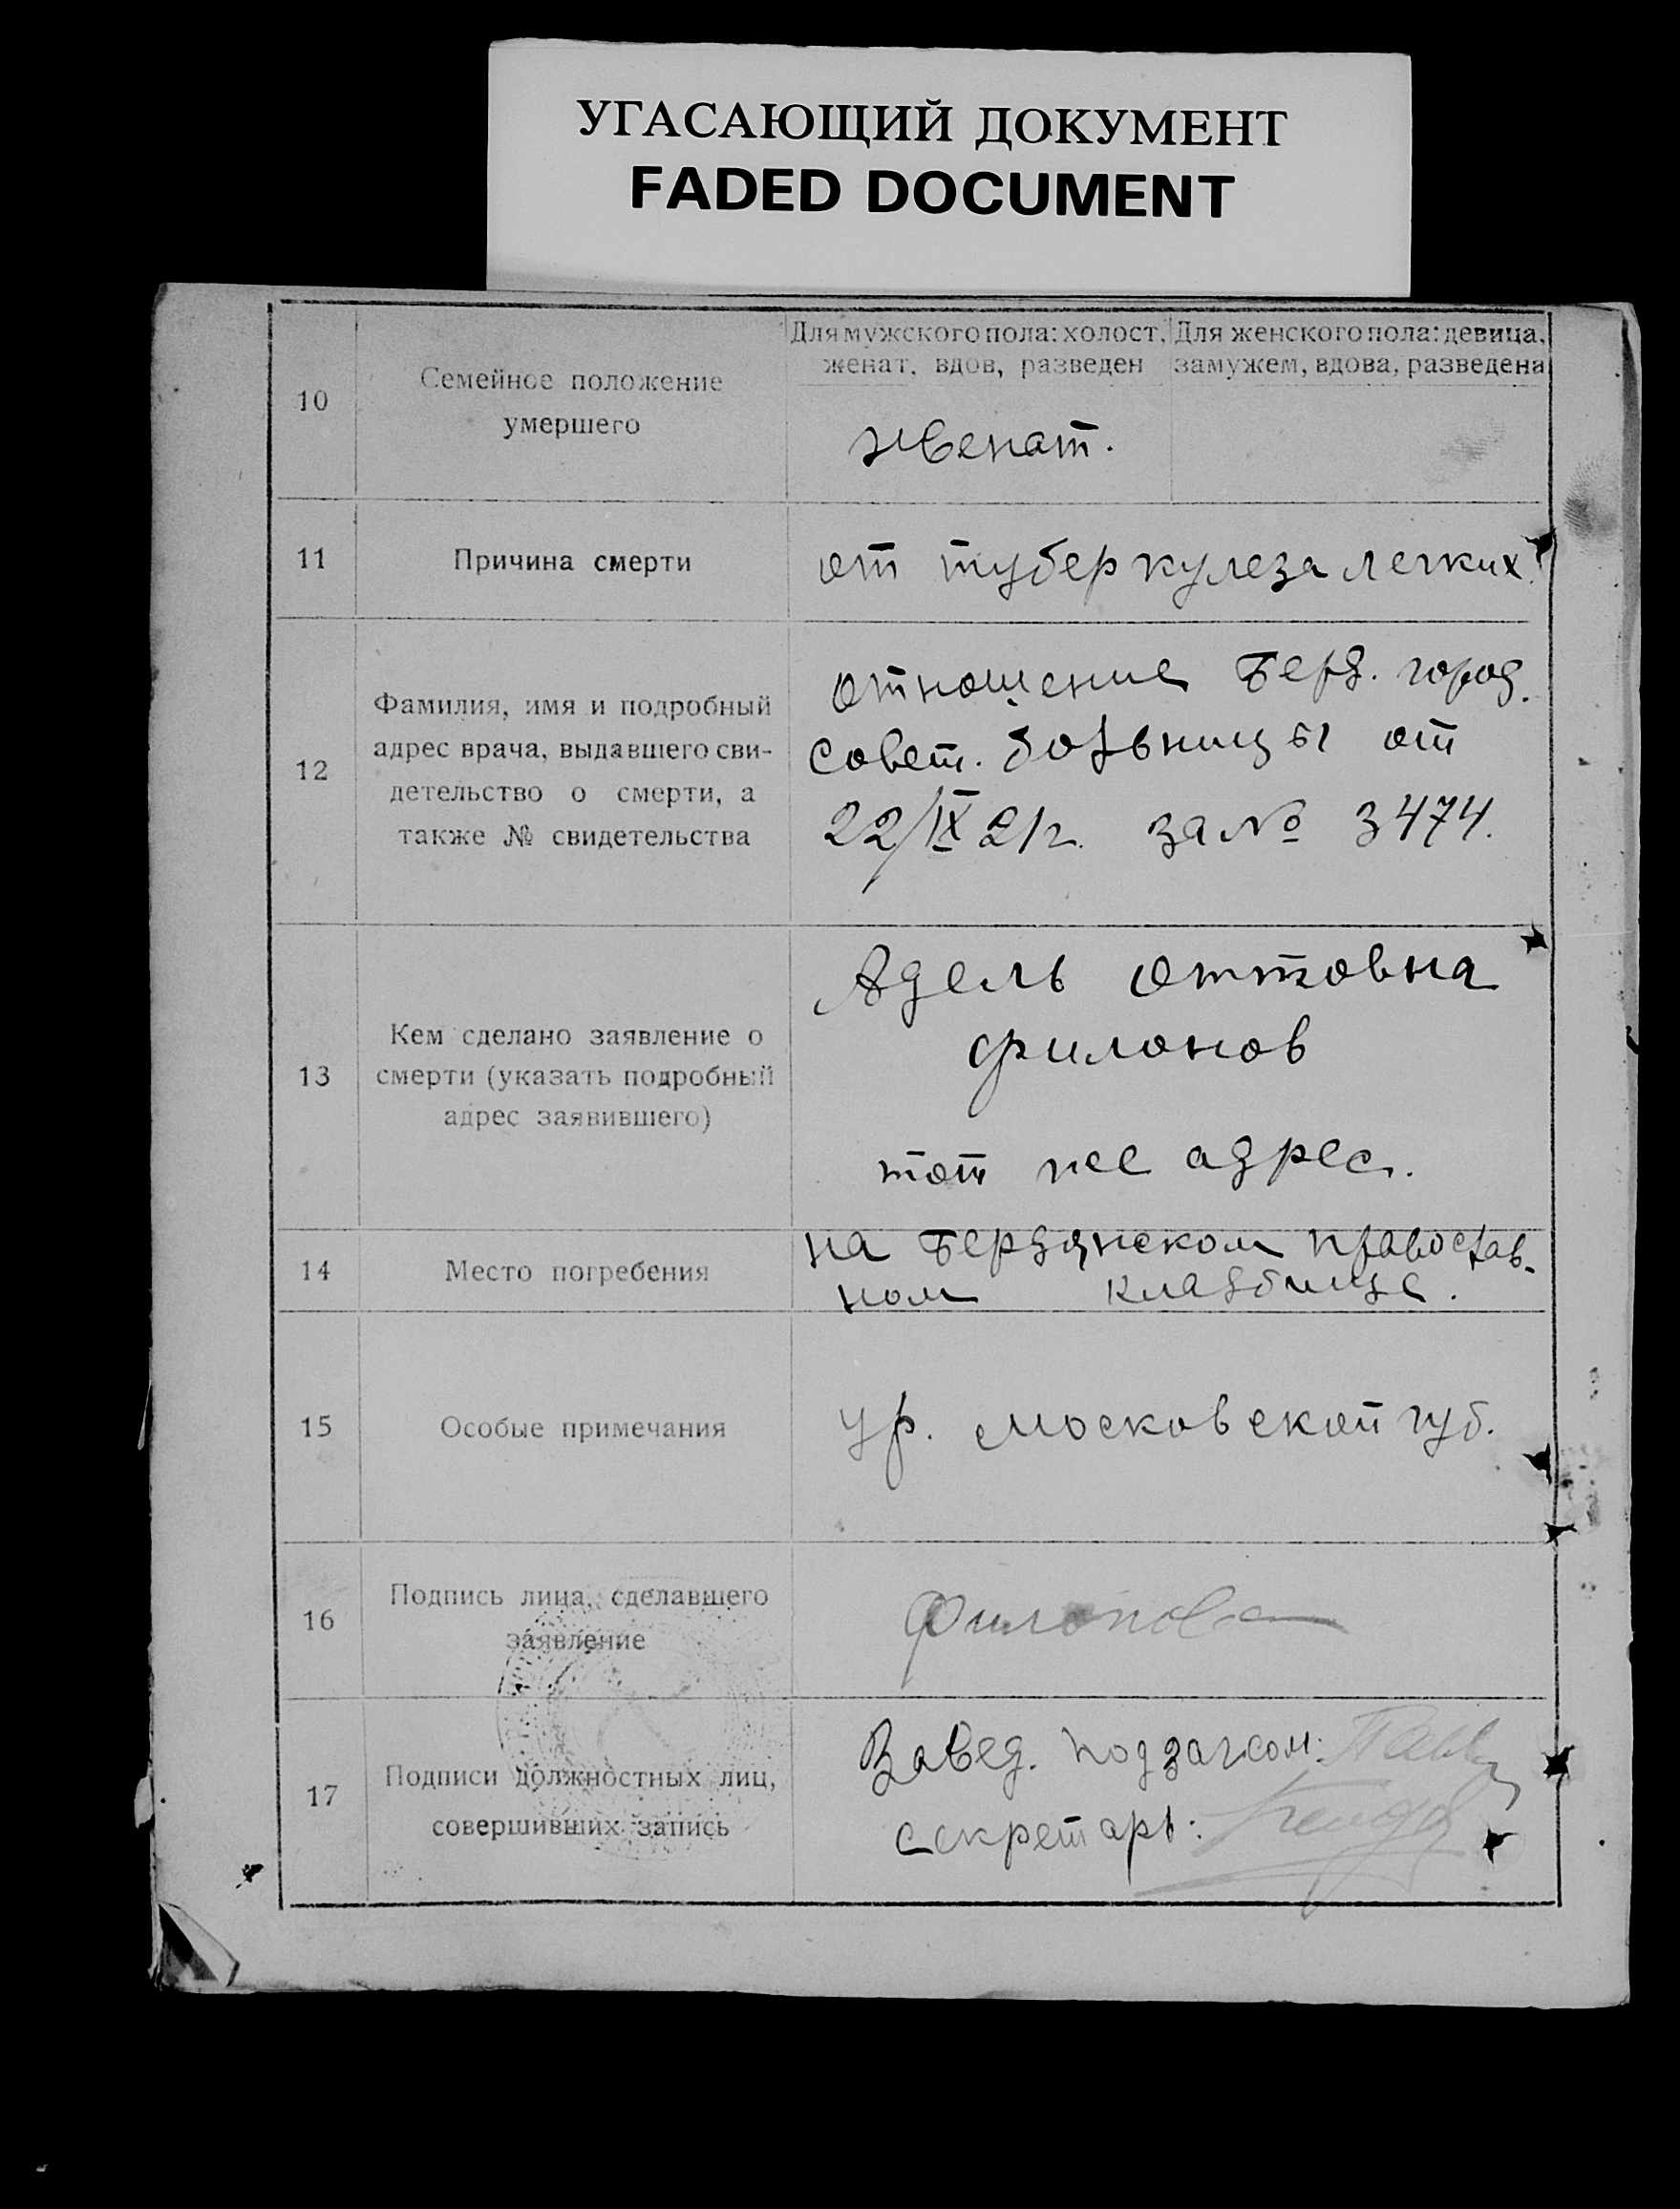 УГАСАЮЩИЙ ДОКУМЕНТ
FADED DOCUMENT
10
Семейное положение
умершего
Для мужского пола: холост,
женат, вдов, разведен
Для женского пола: девица,
замужем, вдова, разведена
женат.
11
Причина смерти
от туберкулеза легких.
12
Фамилия, имя и подробный
адрес врача, выдавшего сви-
детельство о смерти, а
также № свидетельства
отношение Берд. город.
Совет. больницы от
22/IX 21г. за № 3474.
13
Кем сделано заявление о
смерти (указать подробный
адрес заявившего)
Адель Оттовна
Филонов
тот же адрес.
14
Место погребения
на Бердянском православ-
ном кладбище.
15
Особые примечания
ур. Московской губ.
16
Подпись лица, сделавшего
заявление
Филонова
17
Подписи должностных лиц,
совершивших запись
Завед. подзагсом:
секретарь: